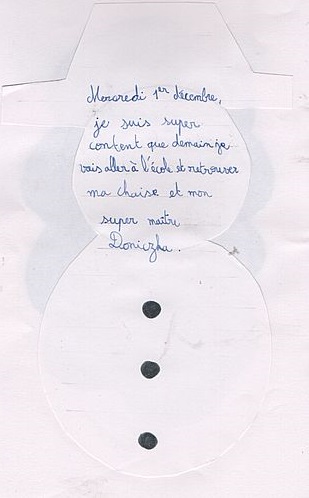 Mercredi 1er décembre,
je suis super
content que demain je
vais aller à l'école et retrouver
ma chaise et mon
super maître
Doniczka.